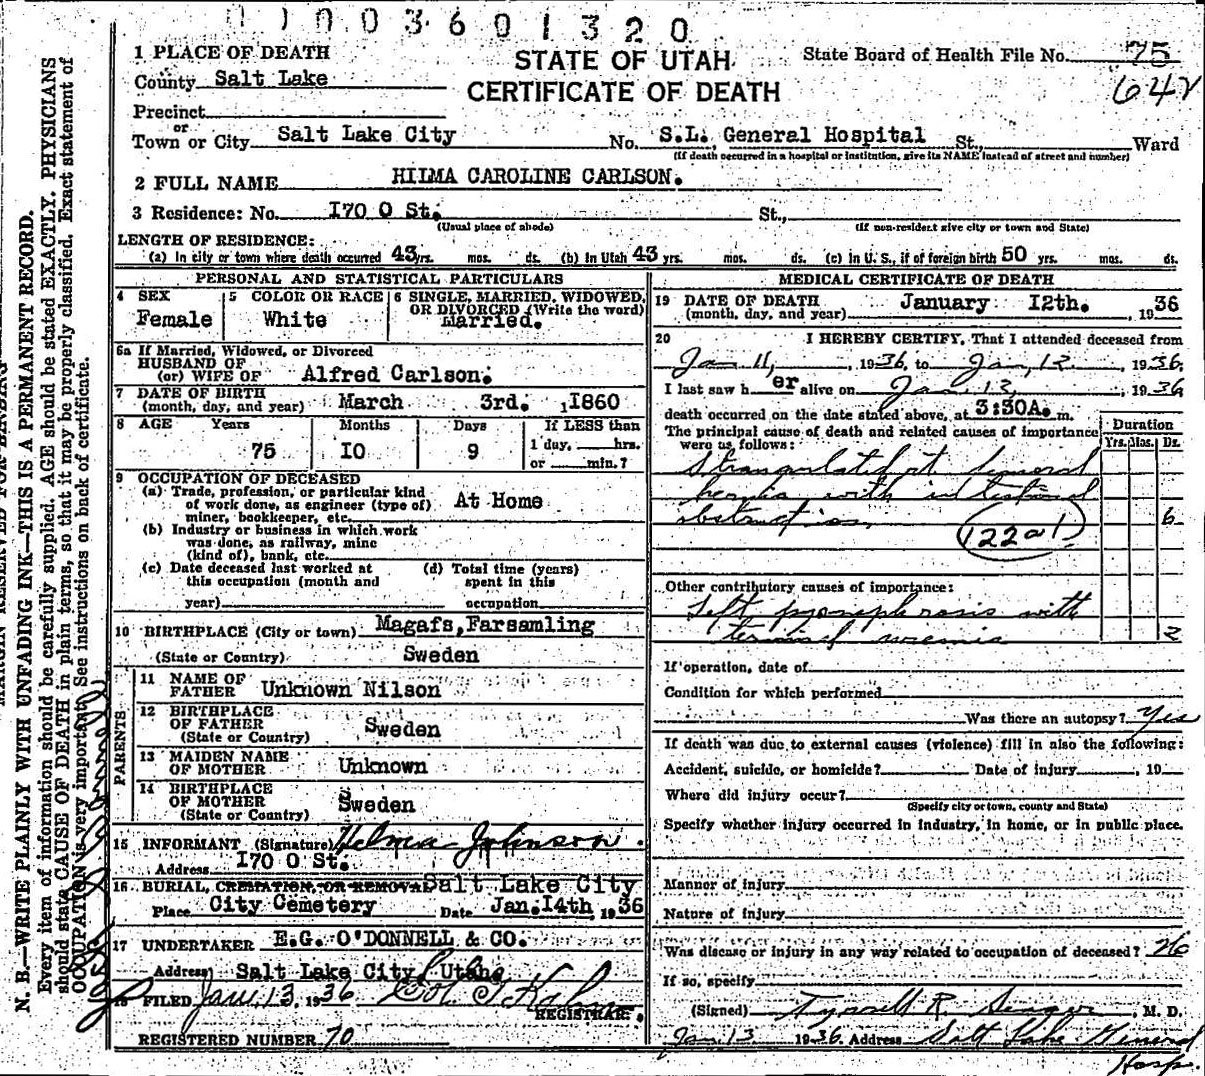 0003601320
1 PLACE OF DEATH
STATE OF UTAH
CERTIFICATE OF DEATH
State Board of Health File No. 75
642
County Salt Lake
Precinct
or
Town or City Salt Lake City No. S.L. General Hospital St., Ward
(If death occurred in a hospital or institution, give its NAME instead of street and number)
2 FULL NAME HILMA CAROLINE CARLSON.
3 Residence: No. I70 O St. St.,
(Usual place of abode) (If non-resident give city or town and State)
LENGTH OF RESIDENCE:
(a) In city or town where death occurred 43 yrs. mos. ds. (b) In Utah 43 yrs. mos. ds. (c) In U. S., if of foreign birth 50 yrs. mos. ds.
PERSONAL AND STATISTICAL PARTICULARS
4 SEX Female
5 COLOR OR RACE White
6 SINGLE, MARRIED, WIDOWED, OR DIVORCED (Write the word) Married.
6a If Married, Widowed, or Divorced
HUSBAND OF
(or) WIFE OF Alfred Carlson.
7 DATE OF BIRTH
(month, day, and year) March 3rd. , 1860
8 AGE Years 75 Months I0 Days 9 If LESS than 1 day, hrs. or min.?
9 OCCUPATION OF DECEASED
(a) Trade, profession, or particular kind of work done, as engineer (type of) miner, bookkeeper, etc. At Home
(b) Industry or business in which work was done, as railway, mine (kind of), bank, etc.
(c) Date deceased last worked at this occupation (month and year)
(d) Total time (years) spent in this occupation
10 BIRTHPLACE (City or town) Magafs, Farsamling
(State or Country) Sweden
PARENTS
11 NAME OF FATHER Unknown Nilson
12 BIRTHPLACE OF FATHER (State or Country) Sweden
13 MAIDEN NAME OF MOTHER Unknown
14 BIRTHPLACE OF MOTHER (State or Country) Sweden
15 INFORMANT (Signature) Helma Johnson.
Address I70 O St.
16 BURIAL, CREMATION, OR REMOVAL Salt Lake City
Place City Cemetery Date Jan. I4th, 1936
17 UNDERTAKER E.G. O'DONNELL & CO.
Address Salt Lake City, Utah
18 FILED Jan. 13, 1936
REGISTRAR.
REGISTERED NUMBER 70
MEDICAL CERTIFICATE OF DEATH
19 DATE OF DEATH
(month, day, and year) January I2th. , 1936
20 I HEREBY CERTIFY, That I attended deceased from
Jan 11, 1936 to Jan, 12, 1936.
I last saw her alive on Jan 12, 1936
death occurred on the date stated above, at 3:30A. m.
The principal cause of death and related causes of importance were as follows:
Duration
Yrs. Mos. Ds.
Strangulated rt femoral
hernia with intestinal
obstruction. 6
122a1
Other contributory causes of importance:
Left pyonephrosis with
terminal uremia 2
If operation, date of
Condition for which performed
Was there an autopsy? Yes
If death was due to external causes (violence) fill in also the following:
Accident, suicide, or homicide? Date of injury , 19
Where did injury occur?
(Specify city or town, county and State)
Specify whether injury occurred in industry, in home, or in public place.
Manner of injury
Nature of injury
Was disease or injury in any way related to occupation of deceased? No
If so, specify
(Signed) Tyrrell R. Seager, M. D.
Jan 13 1936. Address Salt Lake General
Hosp.
N. B.—WRITE PLAINLY WITH UNFADING INK—THIS IS A PERMANENT RECORD.
Every item of information should be carefully supplied. AGE should be stated EXACTLY. PHYSICIANS
should state CAUSE OF DEATH in plain terms, so that it may be properly classified. Exact statement of
OCCUPATION is very important. See instructions on back of certificate.